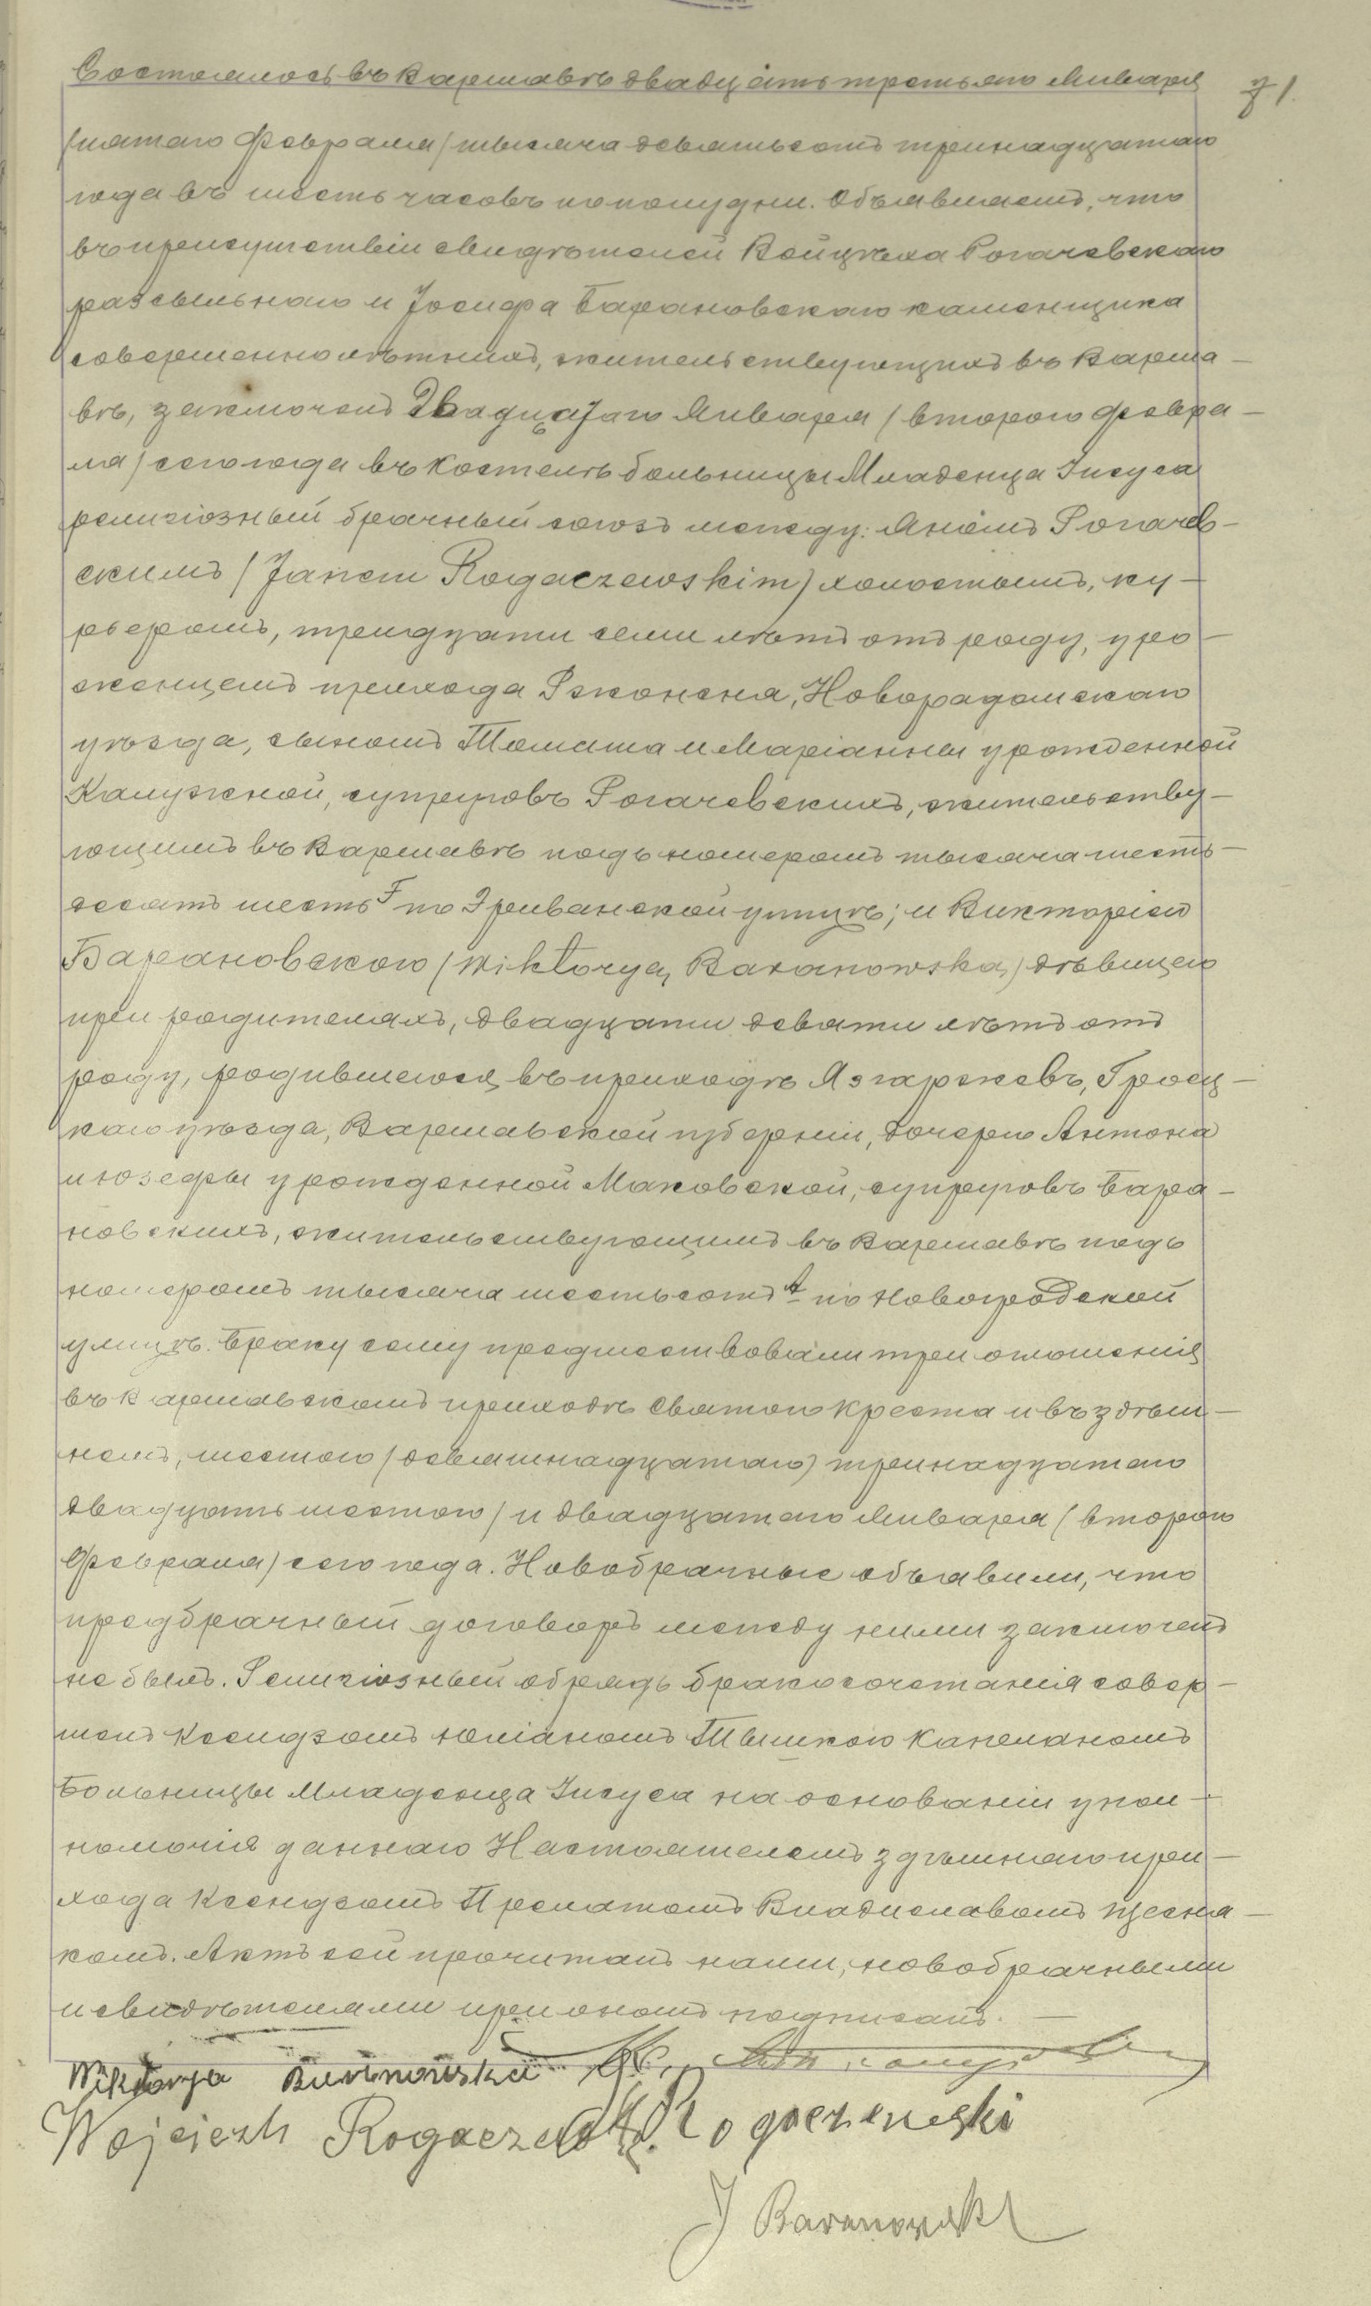 Состоялось въ Варшавѣ двадцать третьяго Января
71.
/пятаго Февраля/ тысяча девятьсотъ тринадцатаго
года въ шесть часовъ пополудни. Объявляемъ, что
въ присутствіи свидѣтелей Войцѣха Рогачевскаго
разсыльнаго и Іосифа Барановскаго каменщика
совершеннолѣтнихъ, жительствующихъ въ Варша-
вѣ, заключенъ Двадцатаго Января /второго Февра-
ля/ сего года въ Костелѣ больницы Младенца Іисуса
религіозный брачный союзъ между: Яномъ Рогачев-
скимъ /Janem Rogaczewskim/ холостымъ, ку-
рьеромъ, тридцати семи лѣтъ отъ роду, уро-
женцемъ прихода Рженсня, Новорадомскаго
уѣзда, сыномъ Томаша и Маріанны урожденной
Калужной, супруговъ Рогачевскихъ, жительству-
ющимъ въ Варшавѣ подъ номеромъ тысяча шесть-
десятъ шесть F по Эриванской улицѣ; и Викторіею
Барановскою /Wiktoryą Baranowską/ дѣвицею
при родителяхъ, двадцати девяти лѣтъ отъ
роду, родившеюся въ приходѣ Язгаржевъ, Гроец-
каго уѣзда, Варшавской губерніи, дочерью Антона
и Юзефы урожденной Маковской, супруговъ Бара-
новскихъ, жительствующимъ въ Варшавѣ подъ
номеромъ тысяча шестьсотъ A по Новогродской
улицѣ. Браку сему предшествовали три оглашенія
въ Варшавскомъ приходѣ Святого Креста и въ здѣш-
немъ, шестого /девятнадцатаго/ тринадцатаго
двадцать шестого/ и двадцатаго Января /второго
Февраля/ сего года. Новобрачные объявили, что
предбрачный договоръ между ними заключенъ
не былъ. Религіозный обрядъ бракосочетанія совер-
шенъ Ксендзомъ Юліаномъ Тышкою Капеланомъ
Больницы Младенца Іисуса на основаніи упол-
номочія даннаго Настоятелемъ здѣшняго при-
хода Ксендзомъ Прелатомъ Владиславомъ Щесня-
комъ. Актъ сей прочитанъ нами, новобрачными
и свидѣтелями при ономъ подписанъ.
Wiktorya Baranowska
Wojciech Rogaczewski Rogaczewski
J Baranowski